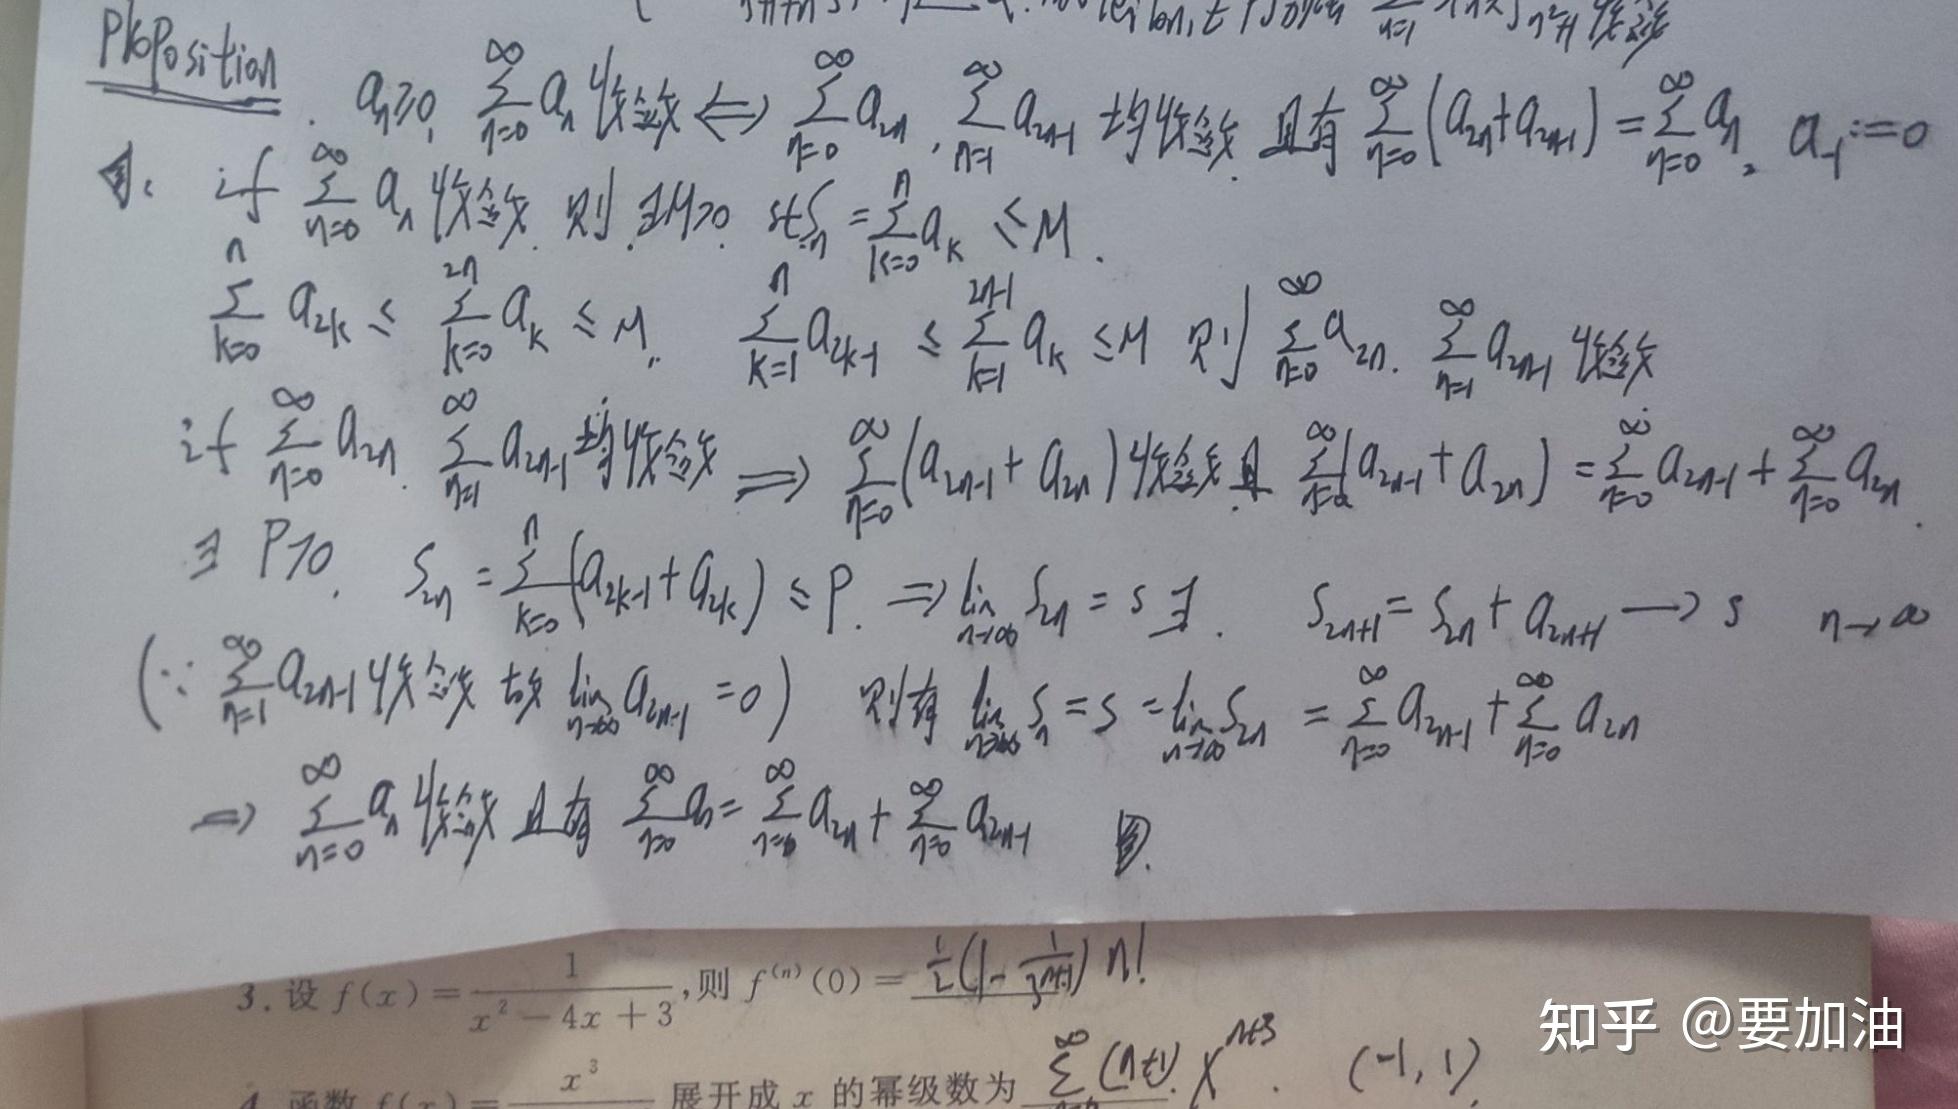 Proposition. aₙ≥0, ∑_{n=0}^{∞} aₙ 收敛 ⟺ ∑_{n=0}^{∞} a_{2n}, ∑_{n=1}^{∞} a_{2n-1} 均收敛. 且有 ∑_{n=0}^{∞} (a_{2n}+a_{2n-1}) = ∑_{n=0}^{∞} aₙ. a_{-1}:=0
if ∑_{n=0}^{∞} aₙ 收敛. 则 ∃M>0. st Sₙ = ∑_{k=0}^{n} a_k ≤ M.
∑_{k=0}^{n} a_{2k} ≤ ∑_{k=0}^{2n} a_k ≤ M, ∑_{k=1}^{n} a_{2k-1} ≤ ∑_{k=1}^{2n-1} a_k ≤ M 则 ∑_{n=0}^{∞} a_{2n}. ∑_{n=1}^{∞} a_{2n-1} 收敛
if ∑_{n=0}^{∞} a_{2n}. ∑_{n=1}^{∞} a_{2n-1} 均收敛 ⟹ ∑_{n=0}^{∞} (a_{2n-1}+a_{2n}) 收敛且 ∑_{n=0}^{∞} (a_{2n-1}+a_{2n}) = ∑_{n=0}^{∞} a_{2n-1} + ∑_{n=0}^{∞} a_{2n}.
∃ P>0. S_{2n} = ∑_{k=0}^{n} (a_{2k-1}+a_{2k}) ≤ P. ⟹ lim_{n→∞} S_{2n} = s ∃. S_{2n+1} = S_{2n} + a_{2n+1} ⟶ s n→∞
(∵ ∑_{n=1}^{∞} a_{2n-1} 收敛 故 lim_{n→∞} a_{2n-1} = 0) 则有 lim_{n→∞} Sₙ = s = lim_{n→∞} S_{2n} = ∑_{n=0}^{∞} a_{2n-1} + ∑_{n=0}^{∞} a_{2n}
⟹ ∑_{n=0}^{∞} aₙ 收敛 且有 ∑_{n=0}^{∞} aₙ = ∑_{n=0}^{∞} a_{2n} + ∑_{n=0}^{∞} a_{2n-1}
3. 设 f(x) = 1/(x² − 4x + 3), 则 f⁽ⁿ⁾(0) = ½(1 − 1/3^{n+1}) n!
展开成 x 的幂级数为 ∑^{∞} (n+1) x^{n+3}. (-1, 1)
知乎 @要加油